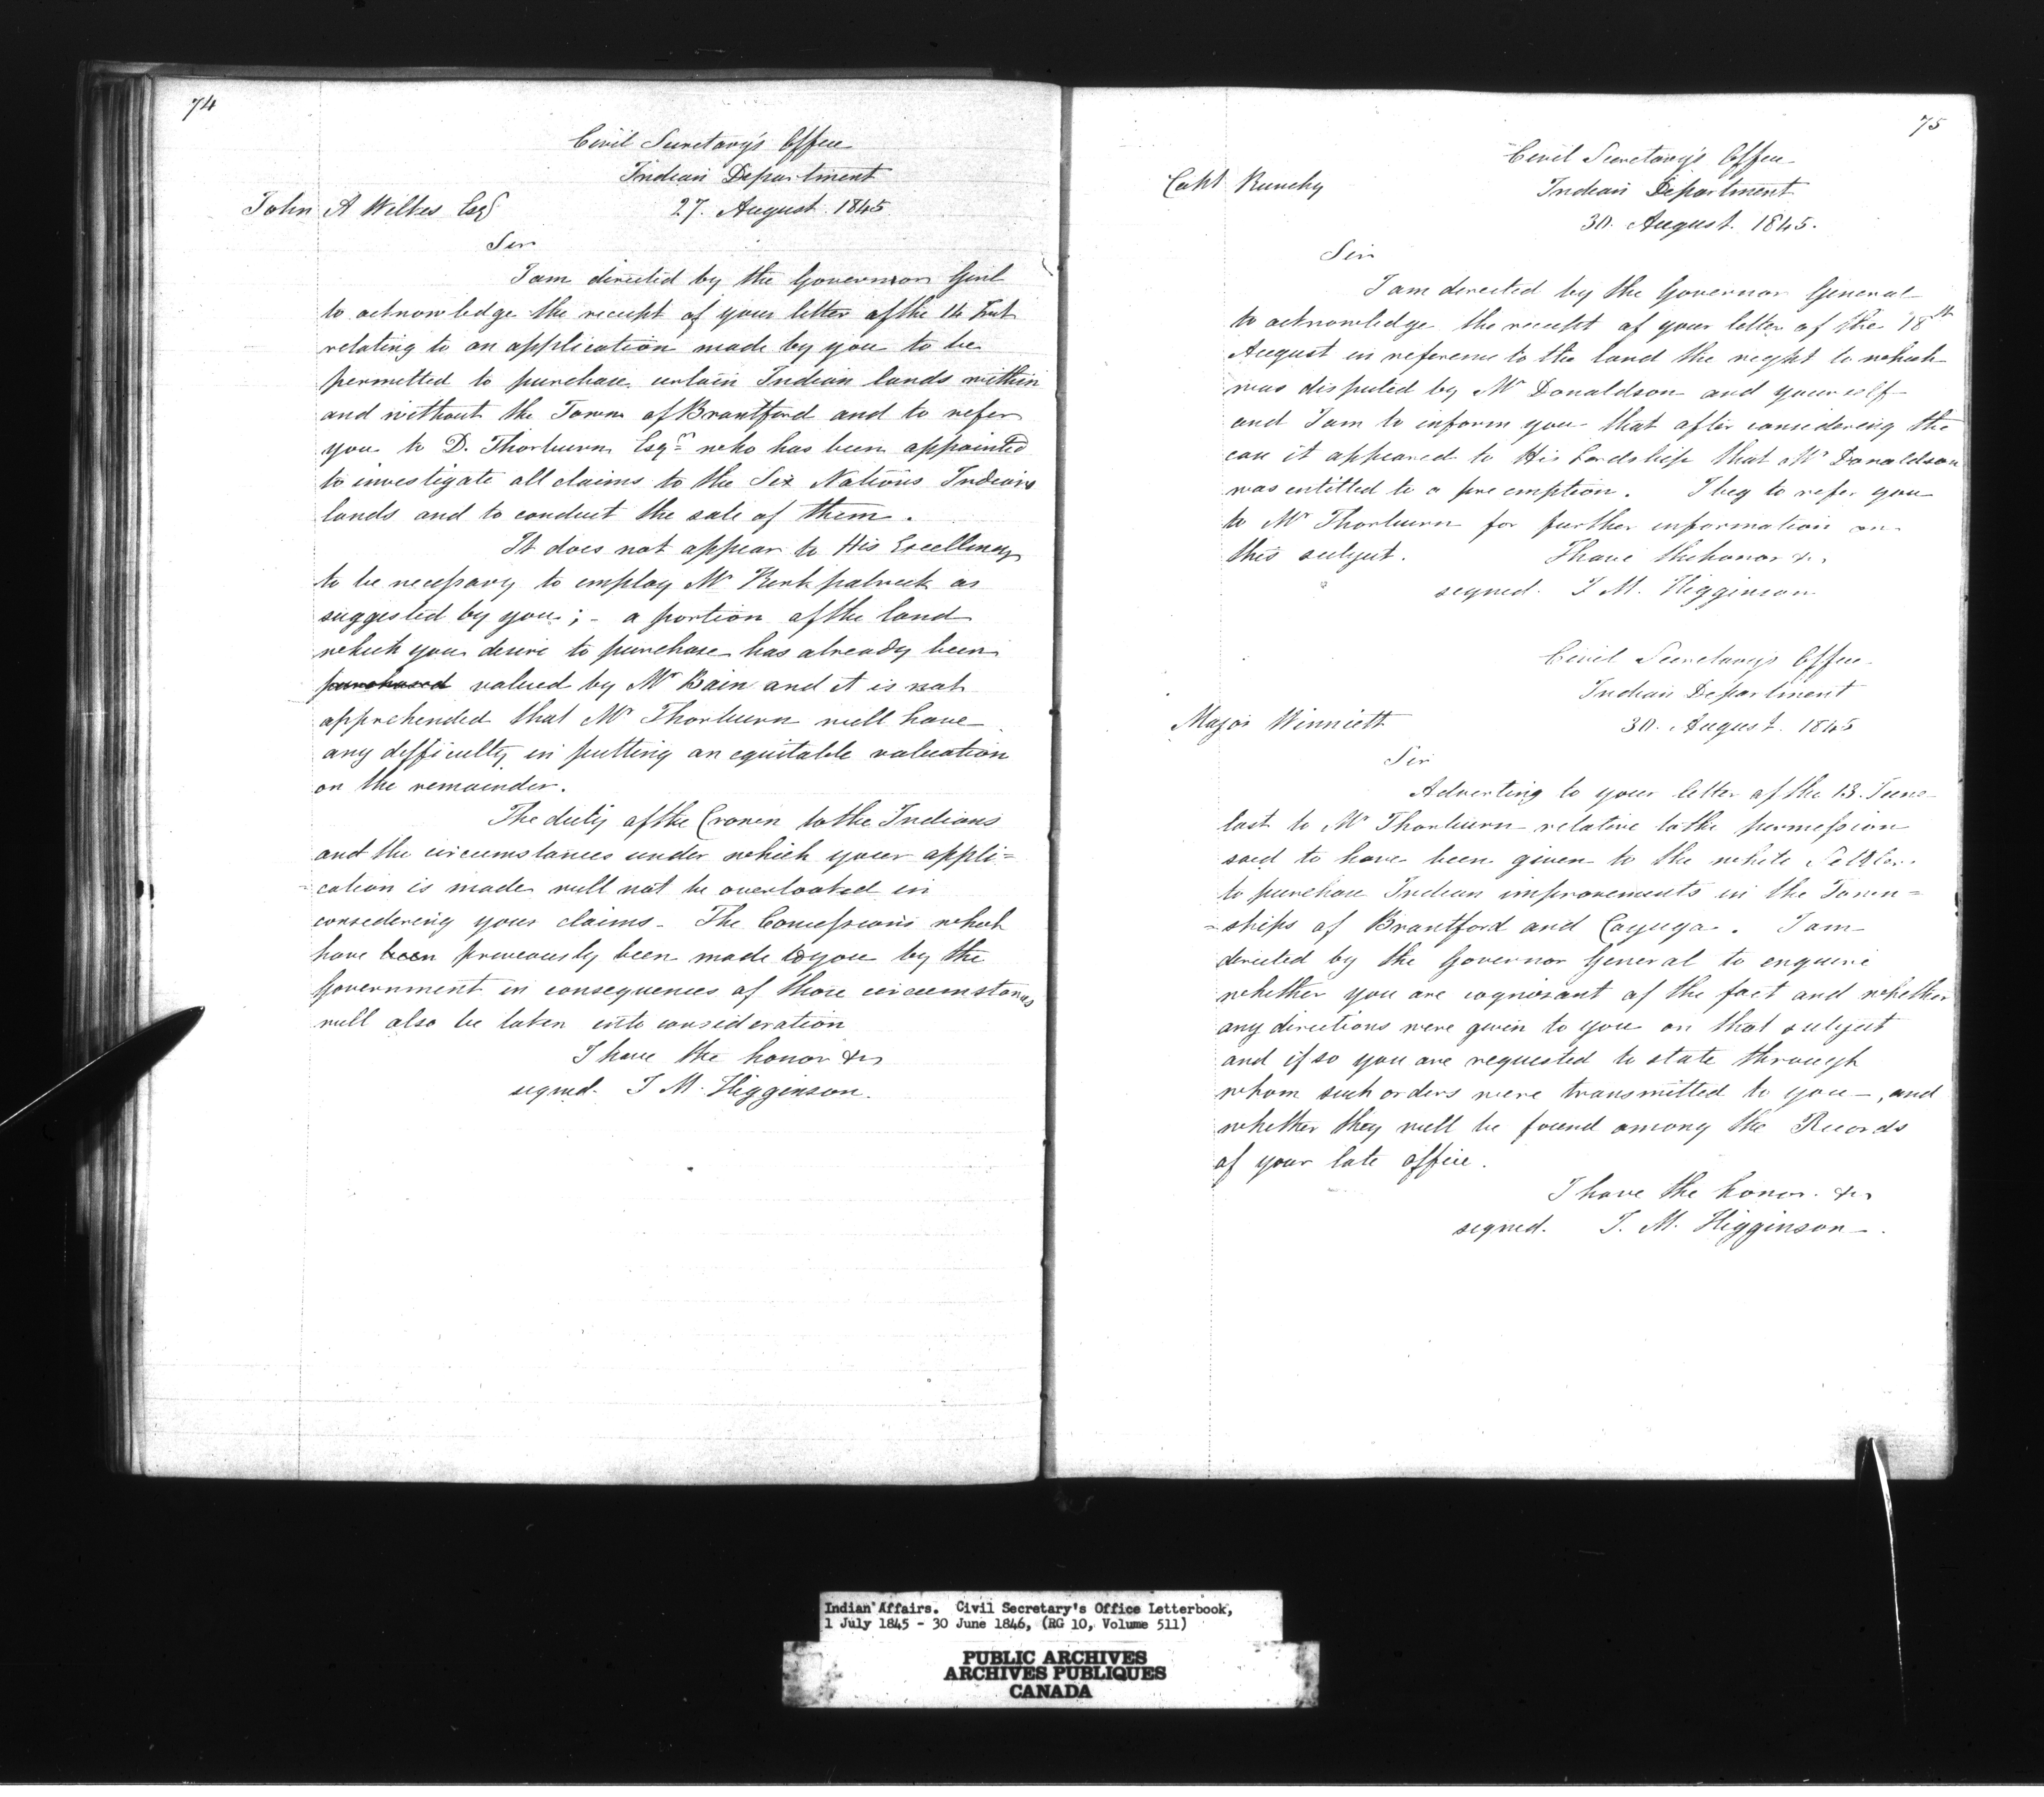 74
Civil Secretary's Office
Indian Department
John A Wilkes Esqr 27. August. 1845
Sir
I am directed by the Governor Genl
to acknowledge the receipt of your letter of the 14 Inst
relating to an application made by you to be
permitted to purchase certain Indian lands within
and without the Town of Brantford and to refer
you to D. Thorburn Esqre who has been appointed
to investigate all claims to the Six Nations Indians
lands and to conduct the sale of them.
It does not appear to His Excellency
to be necessary to employ Mr Kirkpatrick as
suggested by you; - a portion of the land
which you desire to purchase has already been
purchased valued by Mr Bain and it is not
apprehended that Mr Thorburn will have
any difficulty in putting an equitable valuation
on the remainder.
The duty of the Crown to the Indians
and the circumstances under which your appli=
=cation is made will not be overlooked in
considering your claims - The Concessions which
have been previously been made to you by the
Government in consequences of those circumstances
will also be taken into consideration
I have the honor &c
signed. J M. Higginson.
75
Civil Secretary's Office
Capt Runchy Indian Department
30. August. 1845.
Sir
I am directed by the Governor General
to acknowledge the receipt of your letter of the 18th
August in reference to the land the right to which
was disputed by Mr Donaldson and yourself
and I am to inform you that after considering the
case it appeared to His Lordship that Mr Donaldson
was entitled to a pre emption. I beg to refer you
to Mr Thorburn for further information on
this subject. I have the honor &c
signed. J M. Higginson
Civil Secretary's Office
Indian Department
Major Winniett 30. August. 1845
Sir
Adverting to your letter of the 13. June
last to Mr Thorburn relative to the permission
said to have been given to the white Settlers
to purchase Indian improvements in the Town=
=ships of Brantford and Cayuga. I am
directed by the Governor General to enquire
whether you are cognizant of the fact and whether
any directions were given to you on that subject
and if so you are requested to state through
whom such orders were transmitted to you -, and
whether they will be found among the Records
of your late office.
I have the honor. &c
signed. J. M. Higginson -.
Indian Affairs. Civil Secretary's Office Letterbook,
1 July 1845 - 30 June 1846, (RG 10, Volume 511)
PUBLIC ARCHIVES
ARCHIVES PUBLIQUES
CANADA